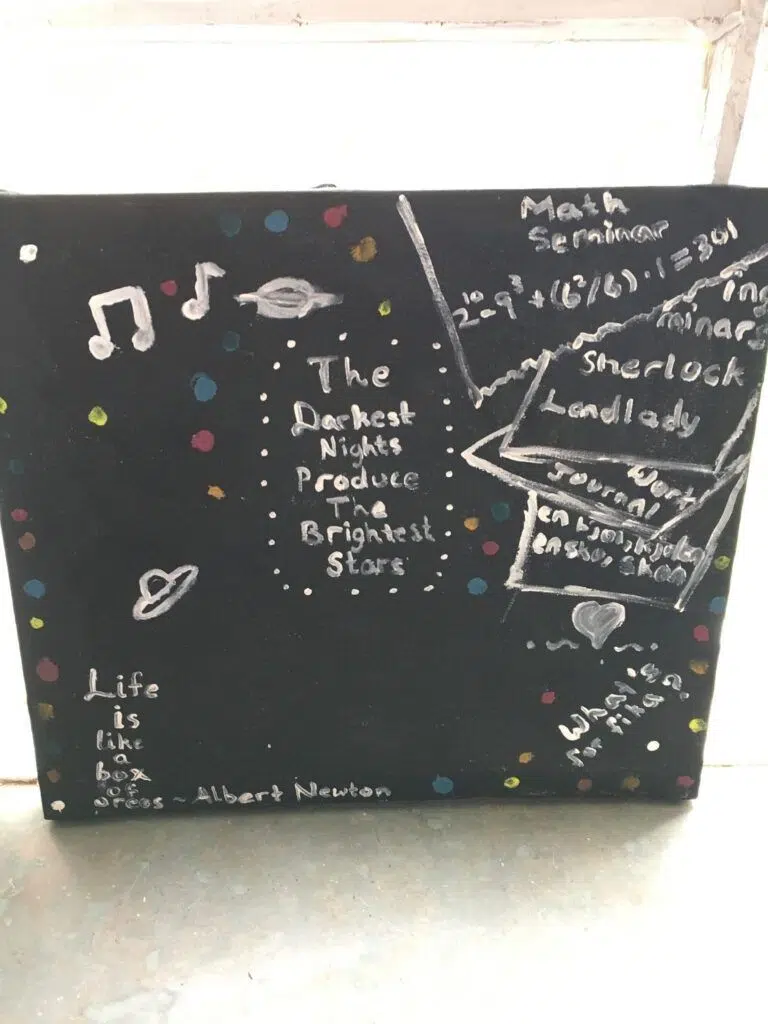 Math
Seminar
2¹⁰-9³+(6²/6)·1=301
ing
minars
Sherlock
Landlady
Journal
en bjol, kjolen
ensko, skon
The
Darkest
Nights
Produce
The
Brightest
Stars
What is
for fika?
Life
is
like
a
box
of
oreos ~Albert Newton